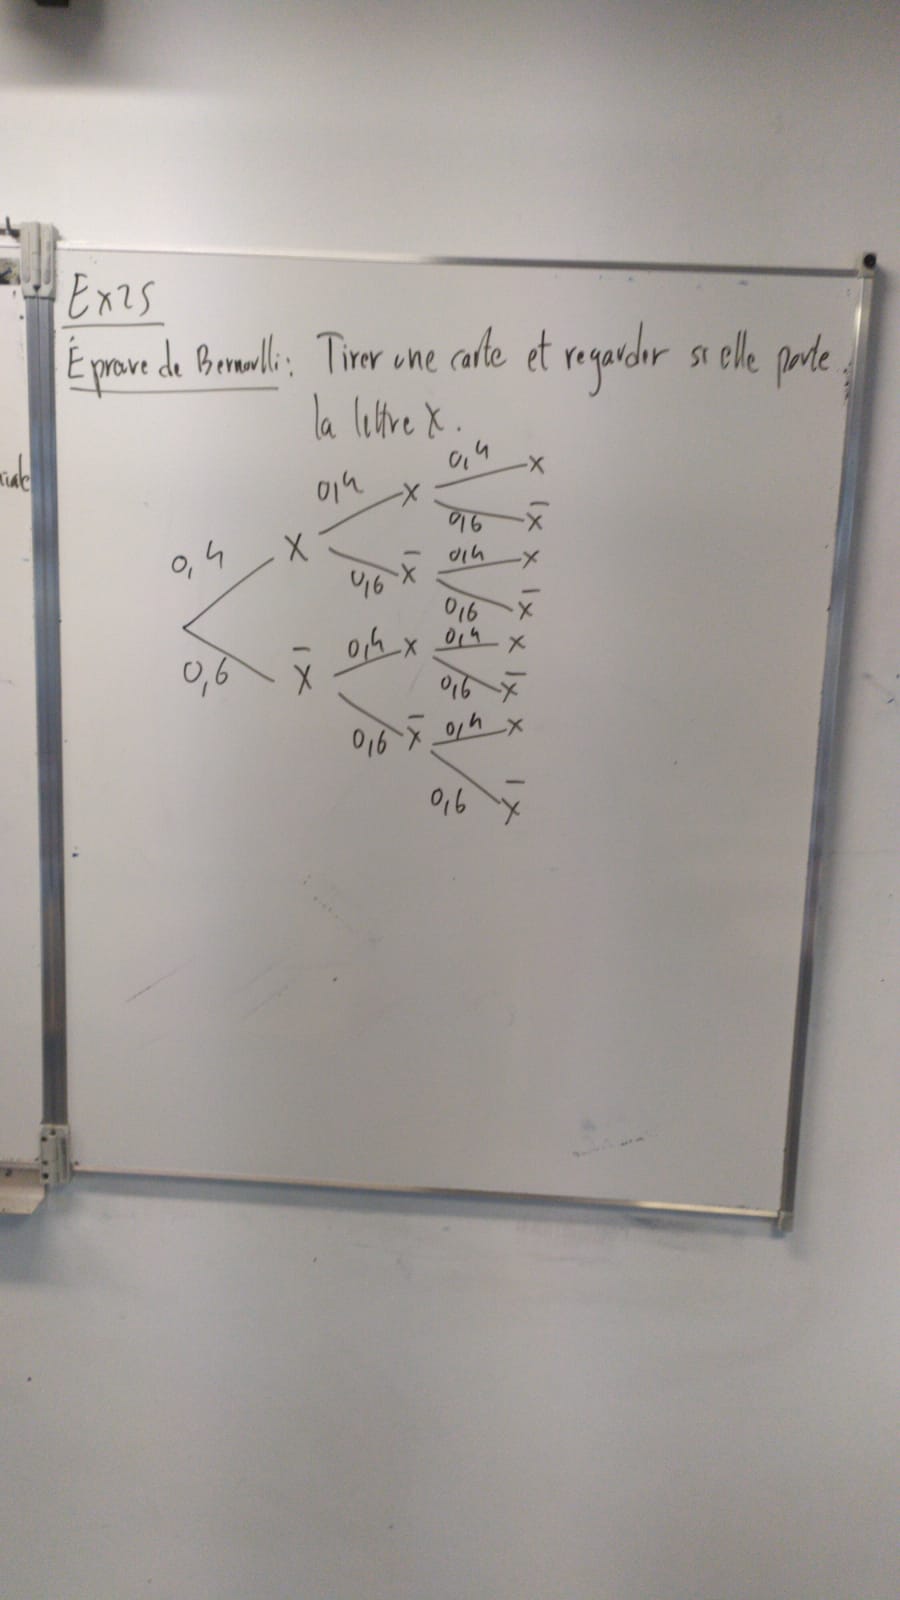 Ex25
Éprouve de Bernoulli: Tirer une carte et regarder si elle porte
la lettre X.
0,4 X
0,4 X
0,4 X
0,6 X̄
0,6 X̄
0,4 X
0,6 X̄
0,6 X̄
0,4 X
0,4 X
0,6 X̄
0,6 X̄
0,4 X
0,6 X̄